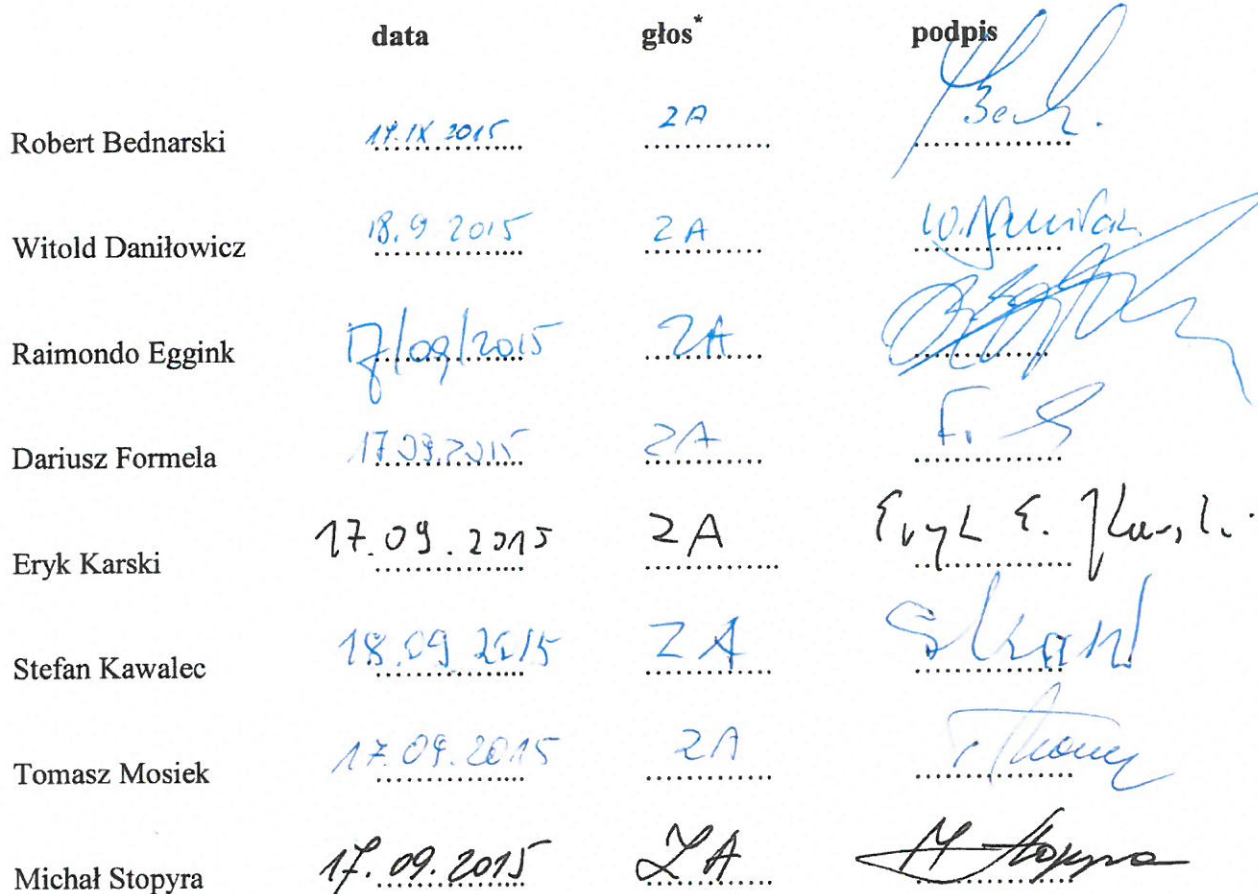 data głos* podpis
Robert Bednarski 17.IX 2015 ZA
Witold Daniłowicz 18.9.2015 ZA
Raimondo Eggink 17/09/2015 ZA
Dariusz Formela 17.09.2015 ZA
Eryk Karski 17.09.2015 ZA Eryk E. Karski
Stefan Kawalec 18.09.2015 ZA
Tomasz Mosiek 17.09.2015 ZA
Michał Stopyra 17.09.2015 ZA M Stopyra